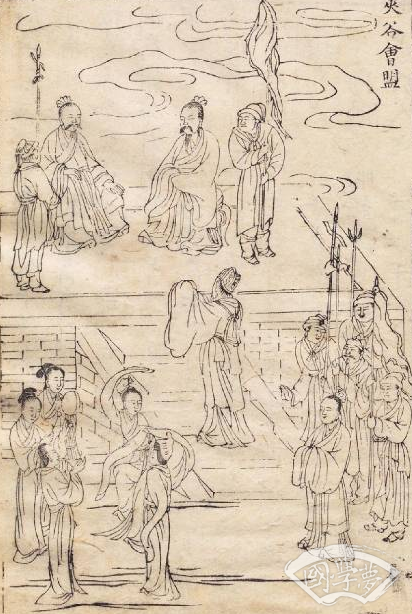 夾谷會盟
國學夢